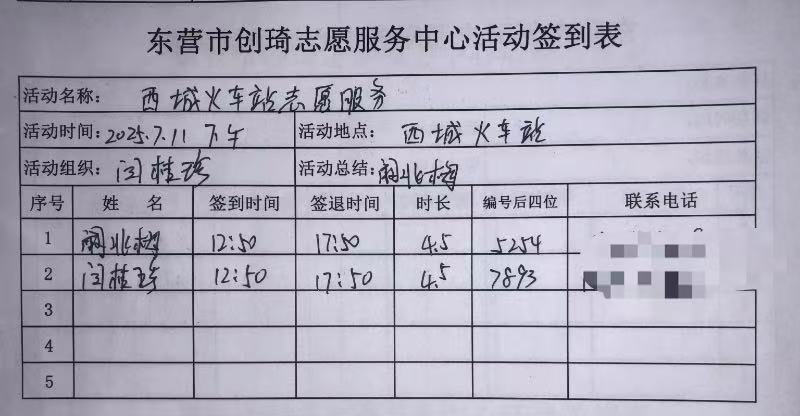 东营市创琦志愿服务中心活动签到表
活动名称: 西城火车站志愿服务
活动时间: 2025.7.11 下午 活动地点: 西城火车站
活动组织: 闫桂珍 活动总结:
序号 姓 名 签到时间 签退时间 时长 编号后四位 联系电话
1 12:50 17:50 4.5 5254
2 闫桂珍 12:50 17:50 4.5 7893
3
4
5